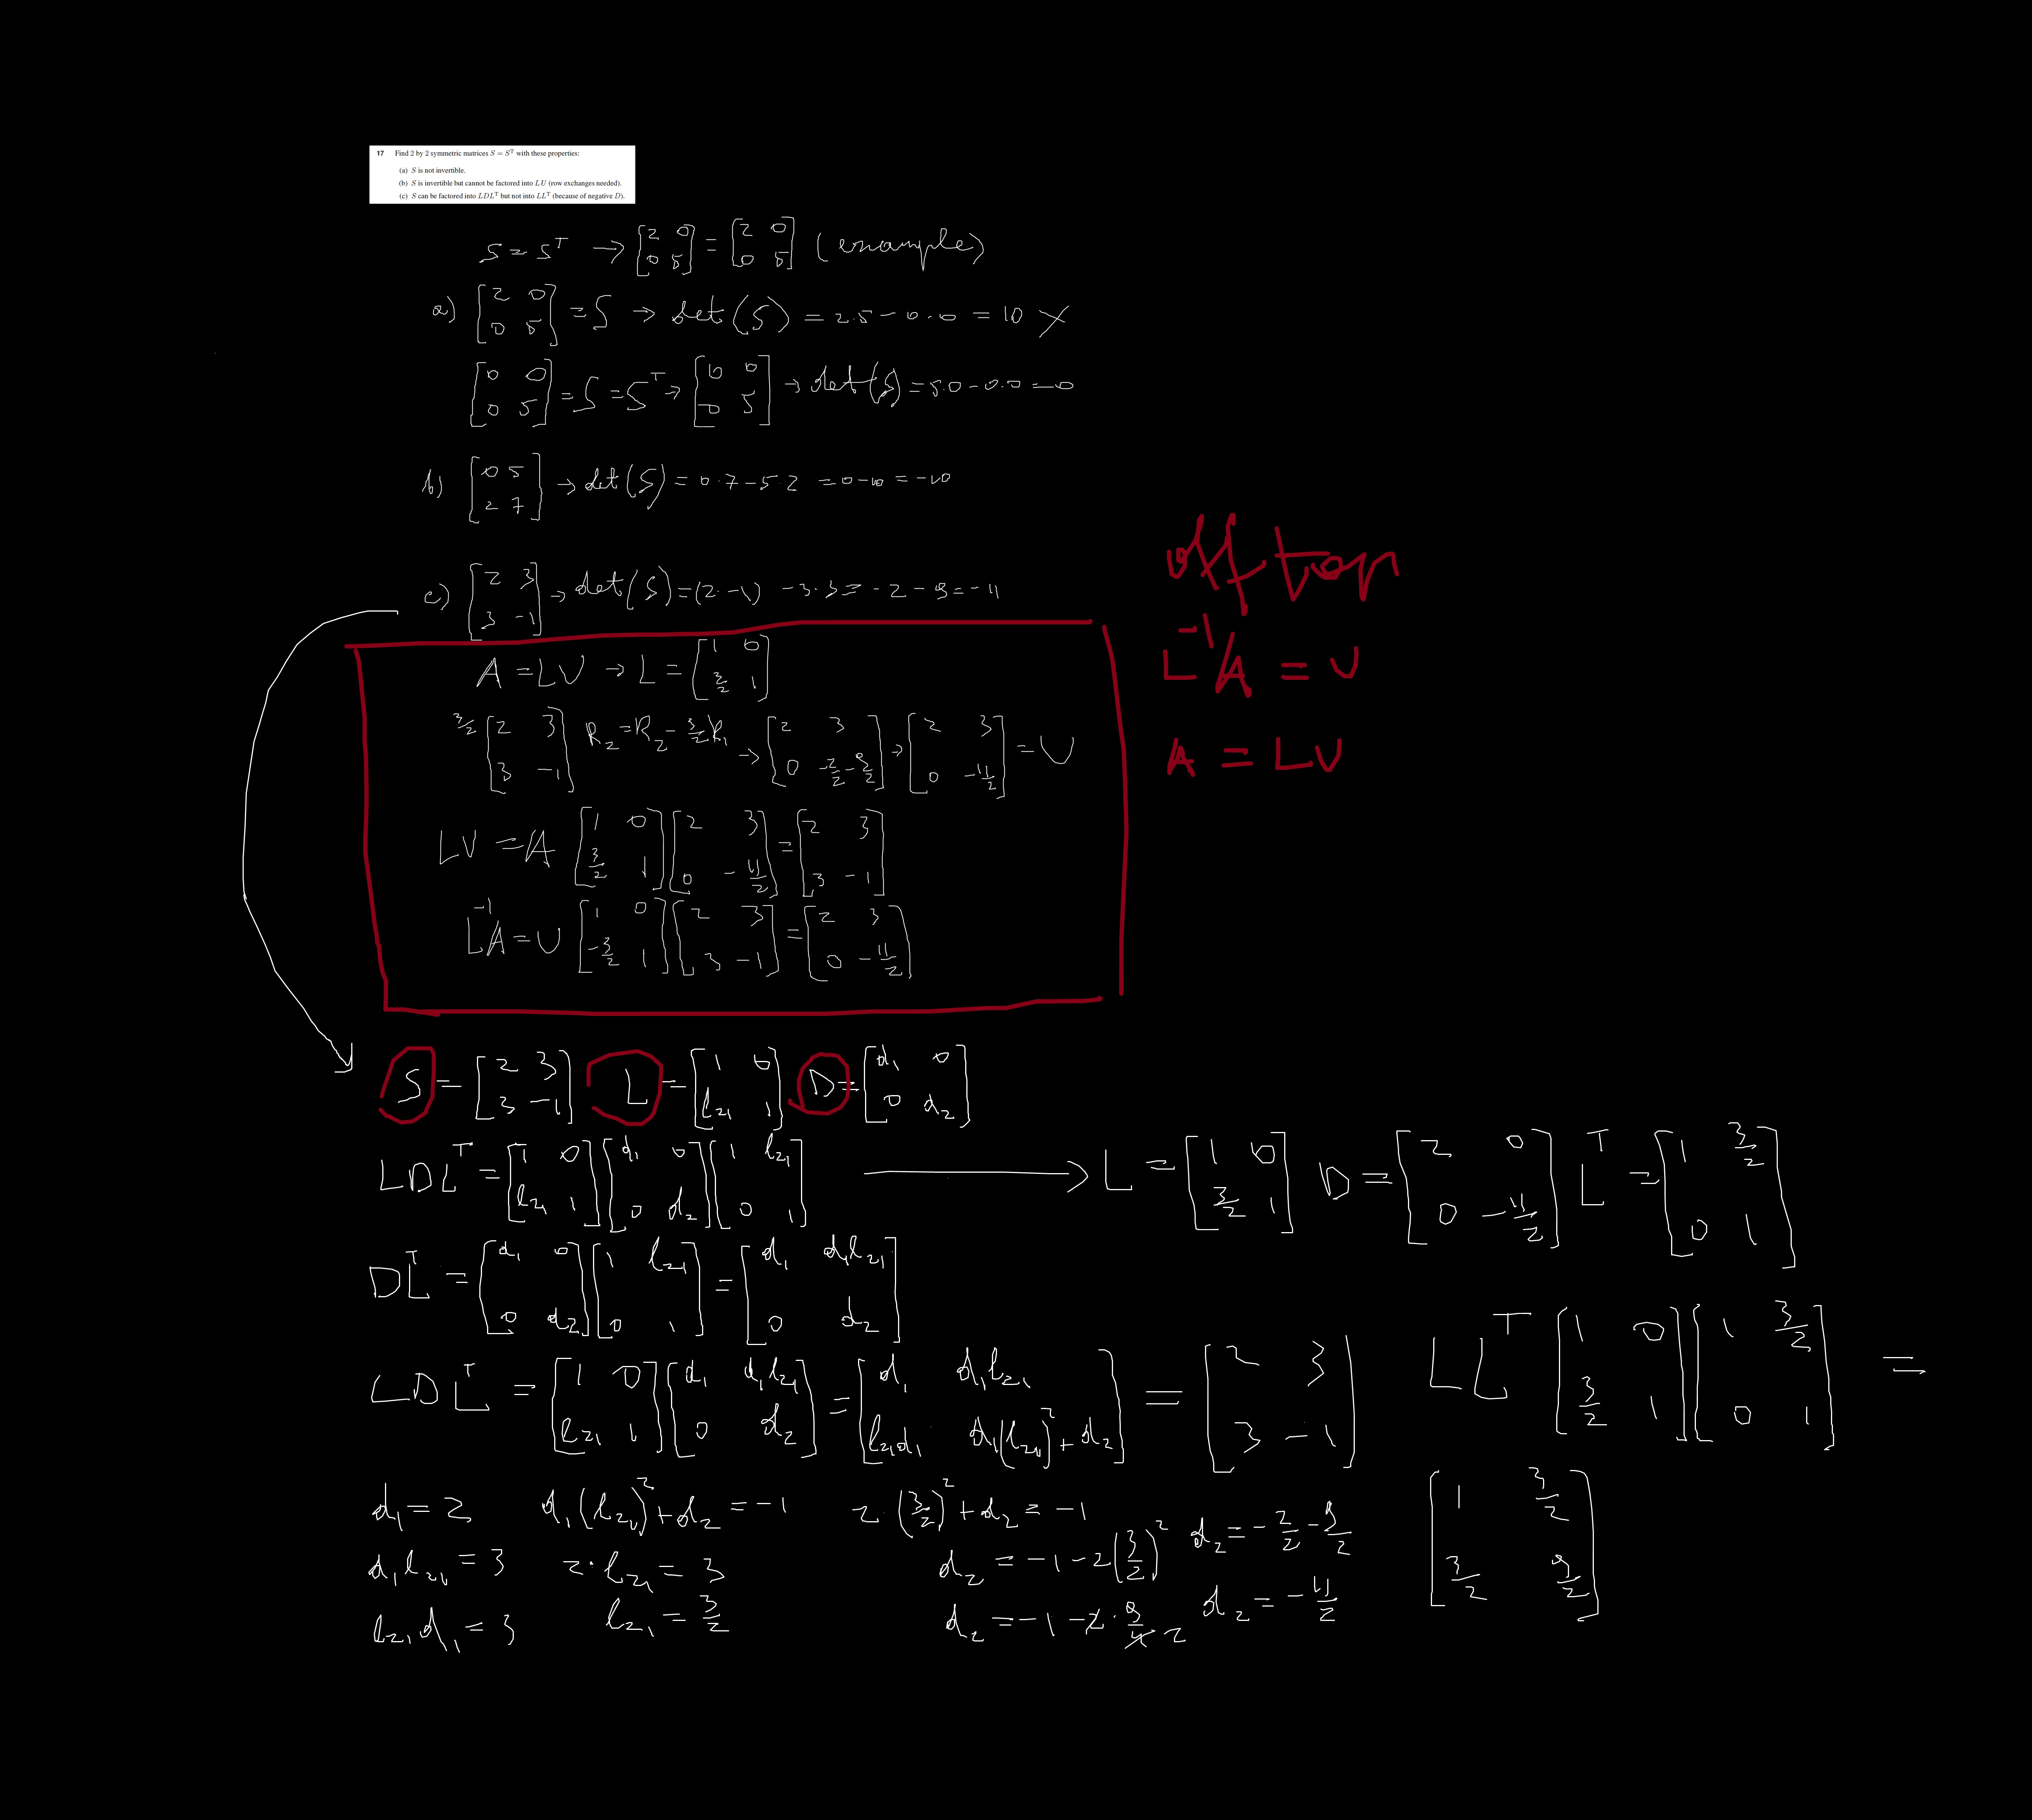 17 Find 2 by 2 symmetric matrices S = Sᵀ with these properties:
(a) S is not invertible.
(b) S is invertible but cannot be factored into LU (row exchanges needed).
(c) S can be factored into LDLᵀ but not into LLᵀ (because of negative D).
S = Sᵀ → [2 0; 0 5] = [2 0; 0 5] (example)
a) [2 0; 0 5] = S → det(S) = 2·5 - 0·0 = 10 X
[0 0; 0 5] = S = Sᵀ → [0 0; 0 5] → det(S) = 5·0 - 0·0 = 0
b) [0 5; 2 7] → det(S) = 0·7 - 5·2 = 0-10 = -10
c) [2 3; 3 -1] → det(S) = (2·-1) - 3·3 = -2 - 9 = -11
off top
L⁻¹A = U
A = LU
A = LU → L = [1 0; 3/2 1]
3/2 [2 3; 3 -1] R₂ = R₂ - 3/2 R₁ → [2 3; 0 -2/2 - 9/2] → [2 3; 0 -11/2] = U
LU = A [1 0; 3/2 1] [2 3; 0 -11/2] = [2 3; 3 -1]
L⁻¹A = U [1 0; -3/2 1] [2 3; 3 -1] = [2 3; 0 -11/2]
S = [2 3; 3 -1] L = [1 0; l₂₁ 1] D = [d₁ 0; 0 d₂]
LDLᵀ = [1 0; l₂₁ 1] [d₁ 0; 0 d₂] [1 l₂₁; 0 1] → L = [1 0; 3/2 1] D = [2 0; 0 -11/2] Lᵀ = [1 3/2; 0 1]
DLᵀ = [d₁ 0; 0 d₂] [1 l₂₁; 0 1] = [d₁ d₁l₂₁; 0 d₂]
LDLᵀ = [1 0; l₂₁ 1] [d₁ d₁l₂₁; 0 d₂] = [d₁ d₁l₂₁; l₂₁d₁ d₁(l₂₁)² + d₂] = [2 3; 3 -1]
LLᵀ [1 0; 3/2 1] [1 3/2; 0 1] =
[1 3/2; 3/2 9/2]
d₁ = 2 d₁(l₂₁)² + d₂ = -1 2(3/2)² + d₂ = -1 d₂ = -2/2 - 9/2
d₁l₂₁ = 3 2·l₂₁ = 3 d₂ = -1 - 2(3/2)² d₂ = -11/2
l₂₁d₁ = 3 l₂₁ = 3/2 d₂ = -1 - 2·9/4 2